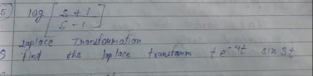 5) log [ s + 1
s - 1 ]
laplace Transformation
find the laplace transform t e^-4t sin 3t